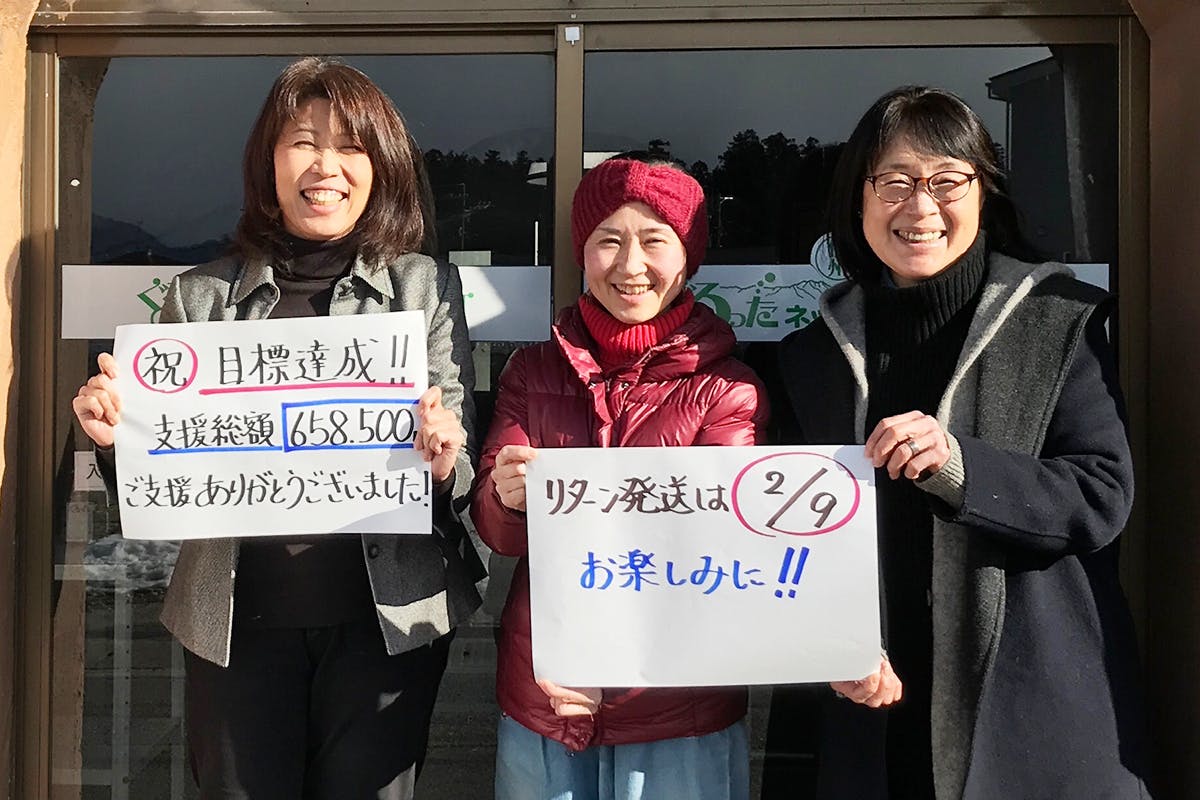 祝 目標達成!!
支援総額 658.500
ご支援ありがとうございました!
リターン発送は 2/9
お楽しみに!!
ったネッ
入